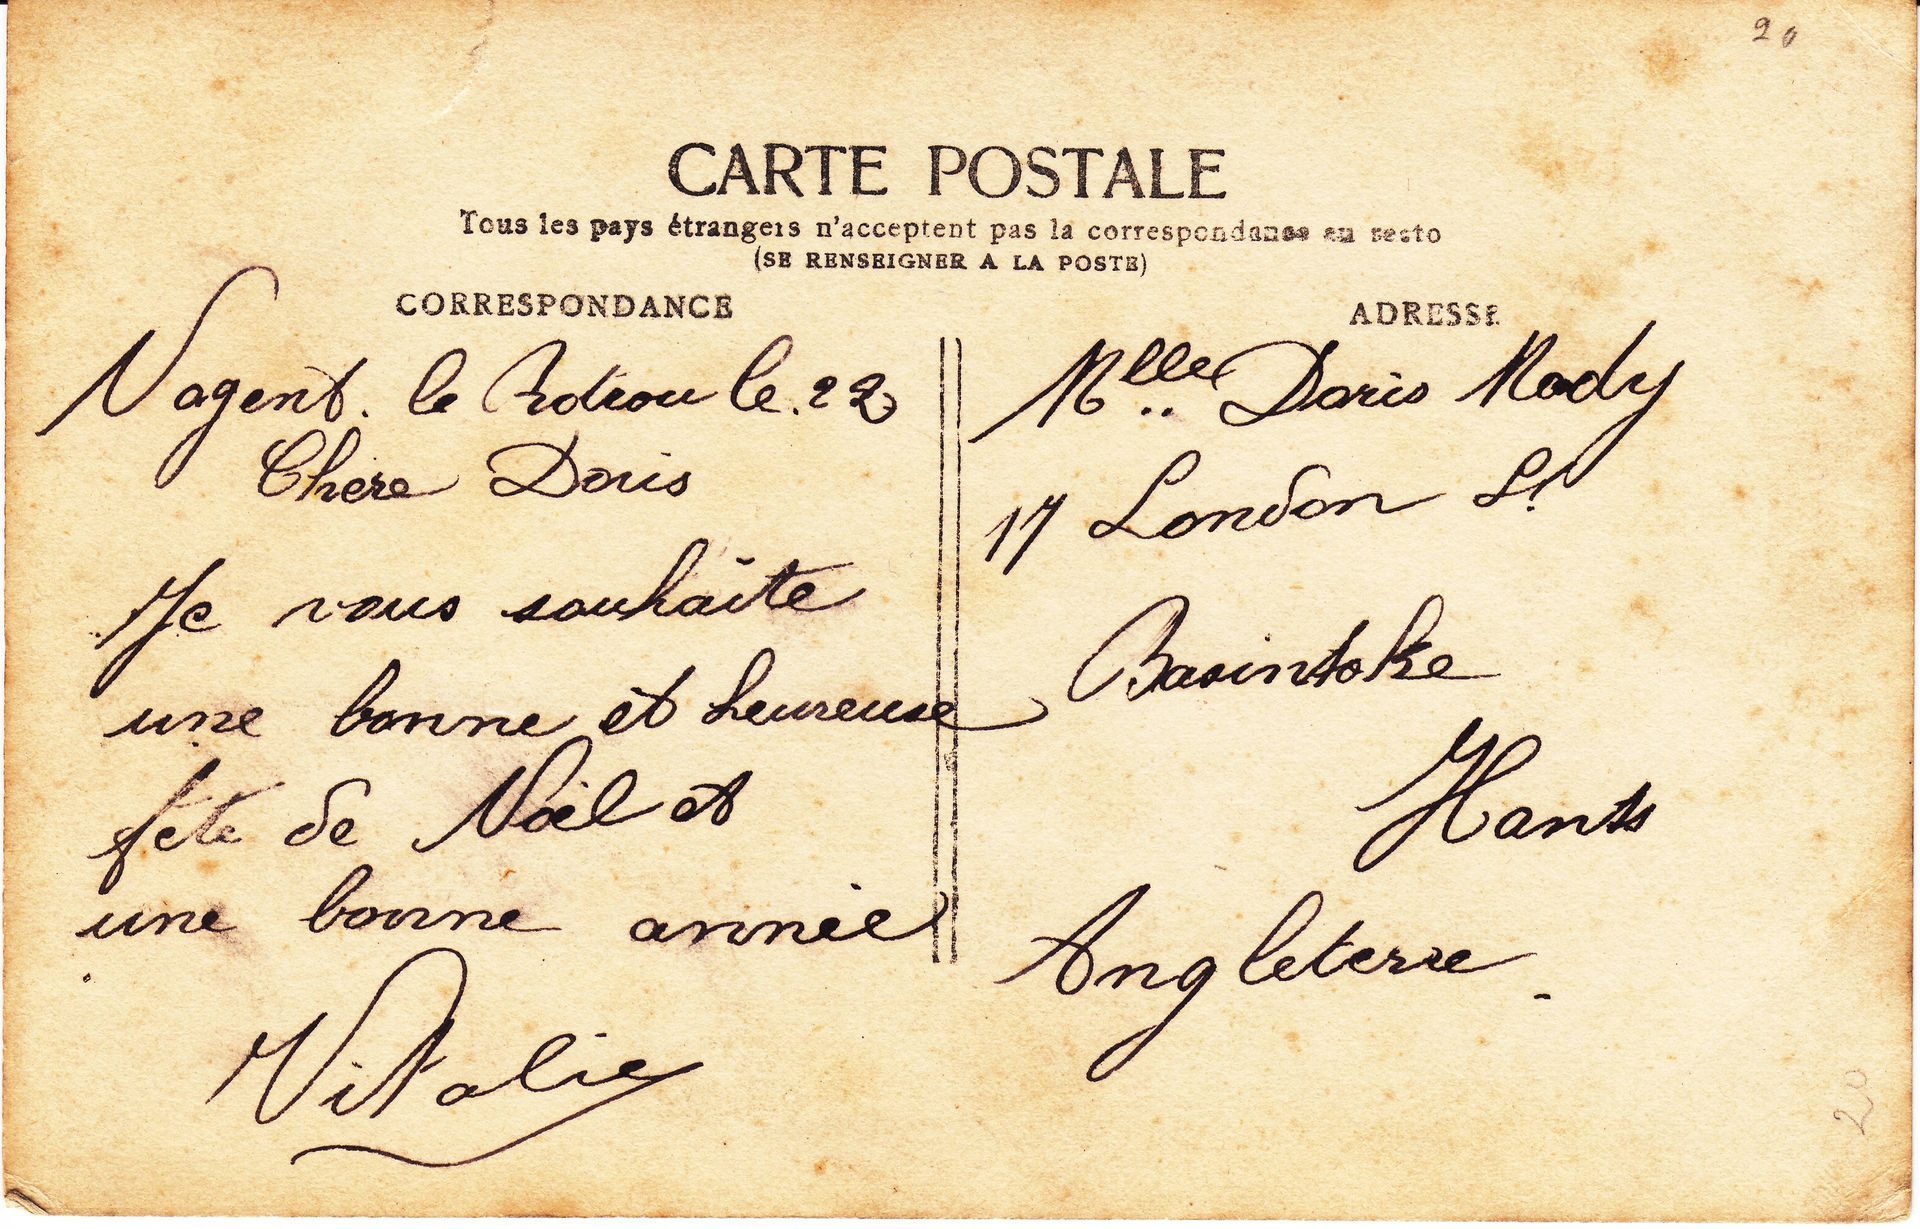 20
CARTE POSTALE
Tous les pays étrangers n'acceptent pas la correspondance au recto
(SE RENSEIGNER A LA POSTE)
CORRESPONDANCE
Nogent. le Rotrou le. 22
Chère Doris
Je vous souhaite
une bonne et heureuse
fête de Noël et
une bonne année
Vitalie
ADRESSE
Mlle Doris Mody
17 London St
Basintoke
Hants
Angleterre
20